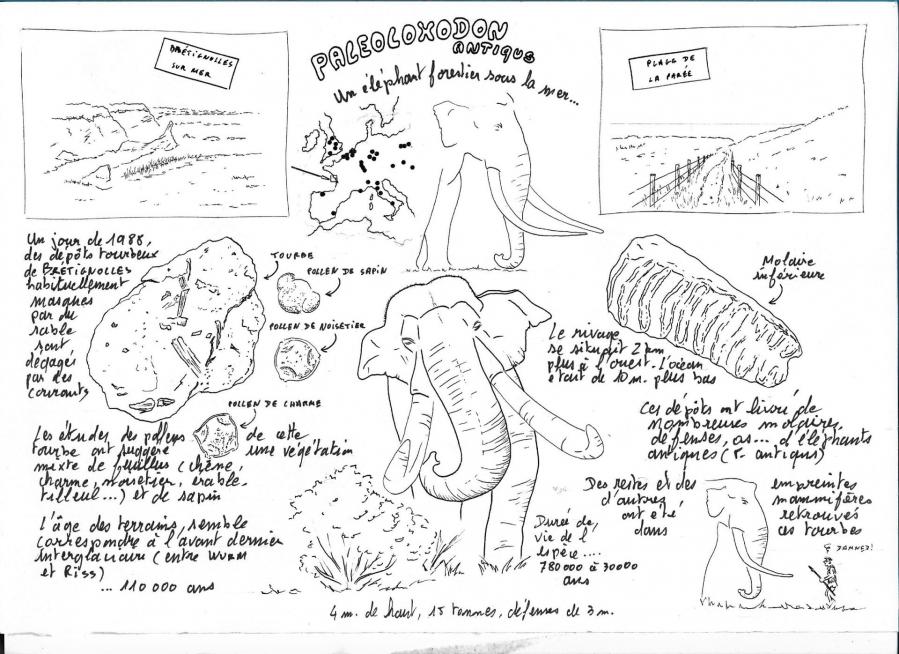 PALEOLOXODON
ANTIQUS
Un éléphant forestier sous la mer...
BRÉTIGNOLLES
SUR MER
PLAGE DE
LA PARÉE
Un jour de 1988,
des dépôts tourbeux
de BRETIGNOLLES
habituellement
masqués
par du
sable
sont
dégagés
par des
courants
TOURBE
POLLEN DE SAPIN
POLLEN DE NOISETIER
POLLEN DE CHARME
Molaire
inférieure
Le rivage
se situait 2 km
plus à l'ouest. L'océan
était de 10 m. plus bas
Les études des pollens de cette
tourbe ont suggéré une végétation
mixte de feuillus (chêne,
charme, noisetier, érable,
tilleul...) et de sapin
L'âge des terrains, semble
correspondre à l'avant dernier
interglaciaire (entre WURM
et RISS)
... 110 000 ans
Ces dépôts ont livré de
nombreuses molaires,
défenses, os... d'éléphants
antiques (P. antiqus)
Des restes et des empreintes
d'autres mammifères
ont été retrouvés
dans ces tourbes
Durée de
vie de l'
espèce....
780000 à 30000
ans
DAMNED!
4 m. de haut, 15 tonnes, défenses de 3 m.